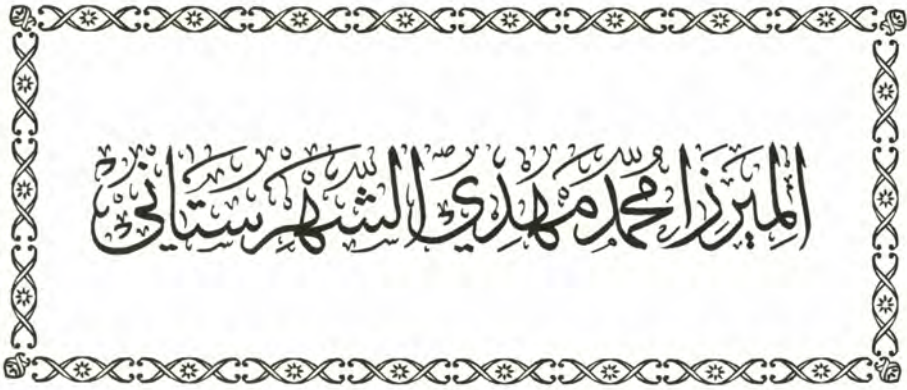 الميرزا محمد مهدي الشهرستاني